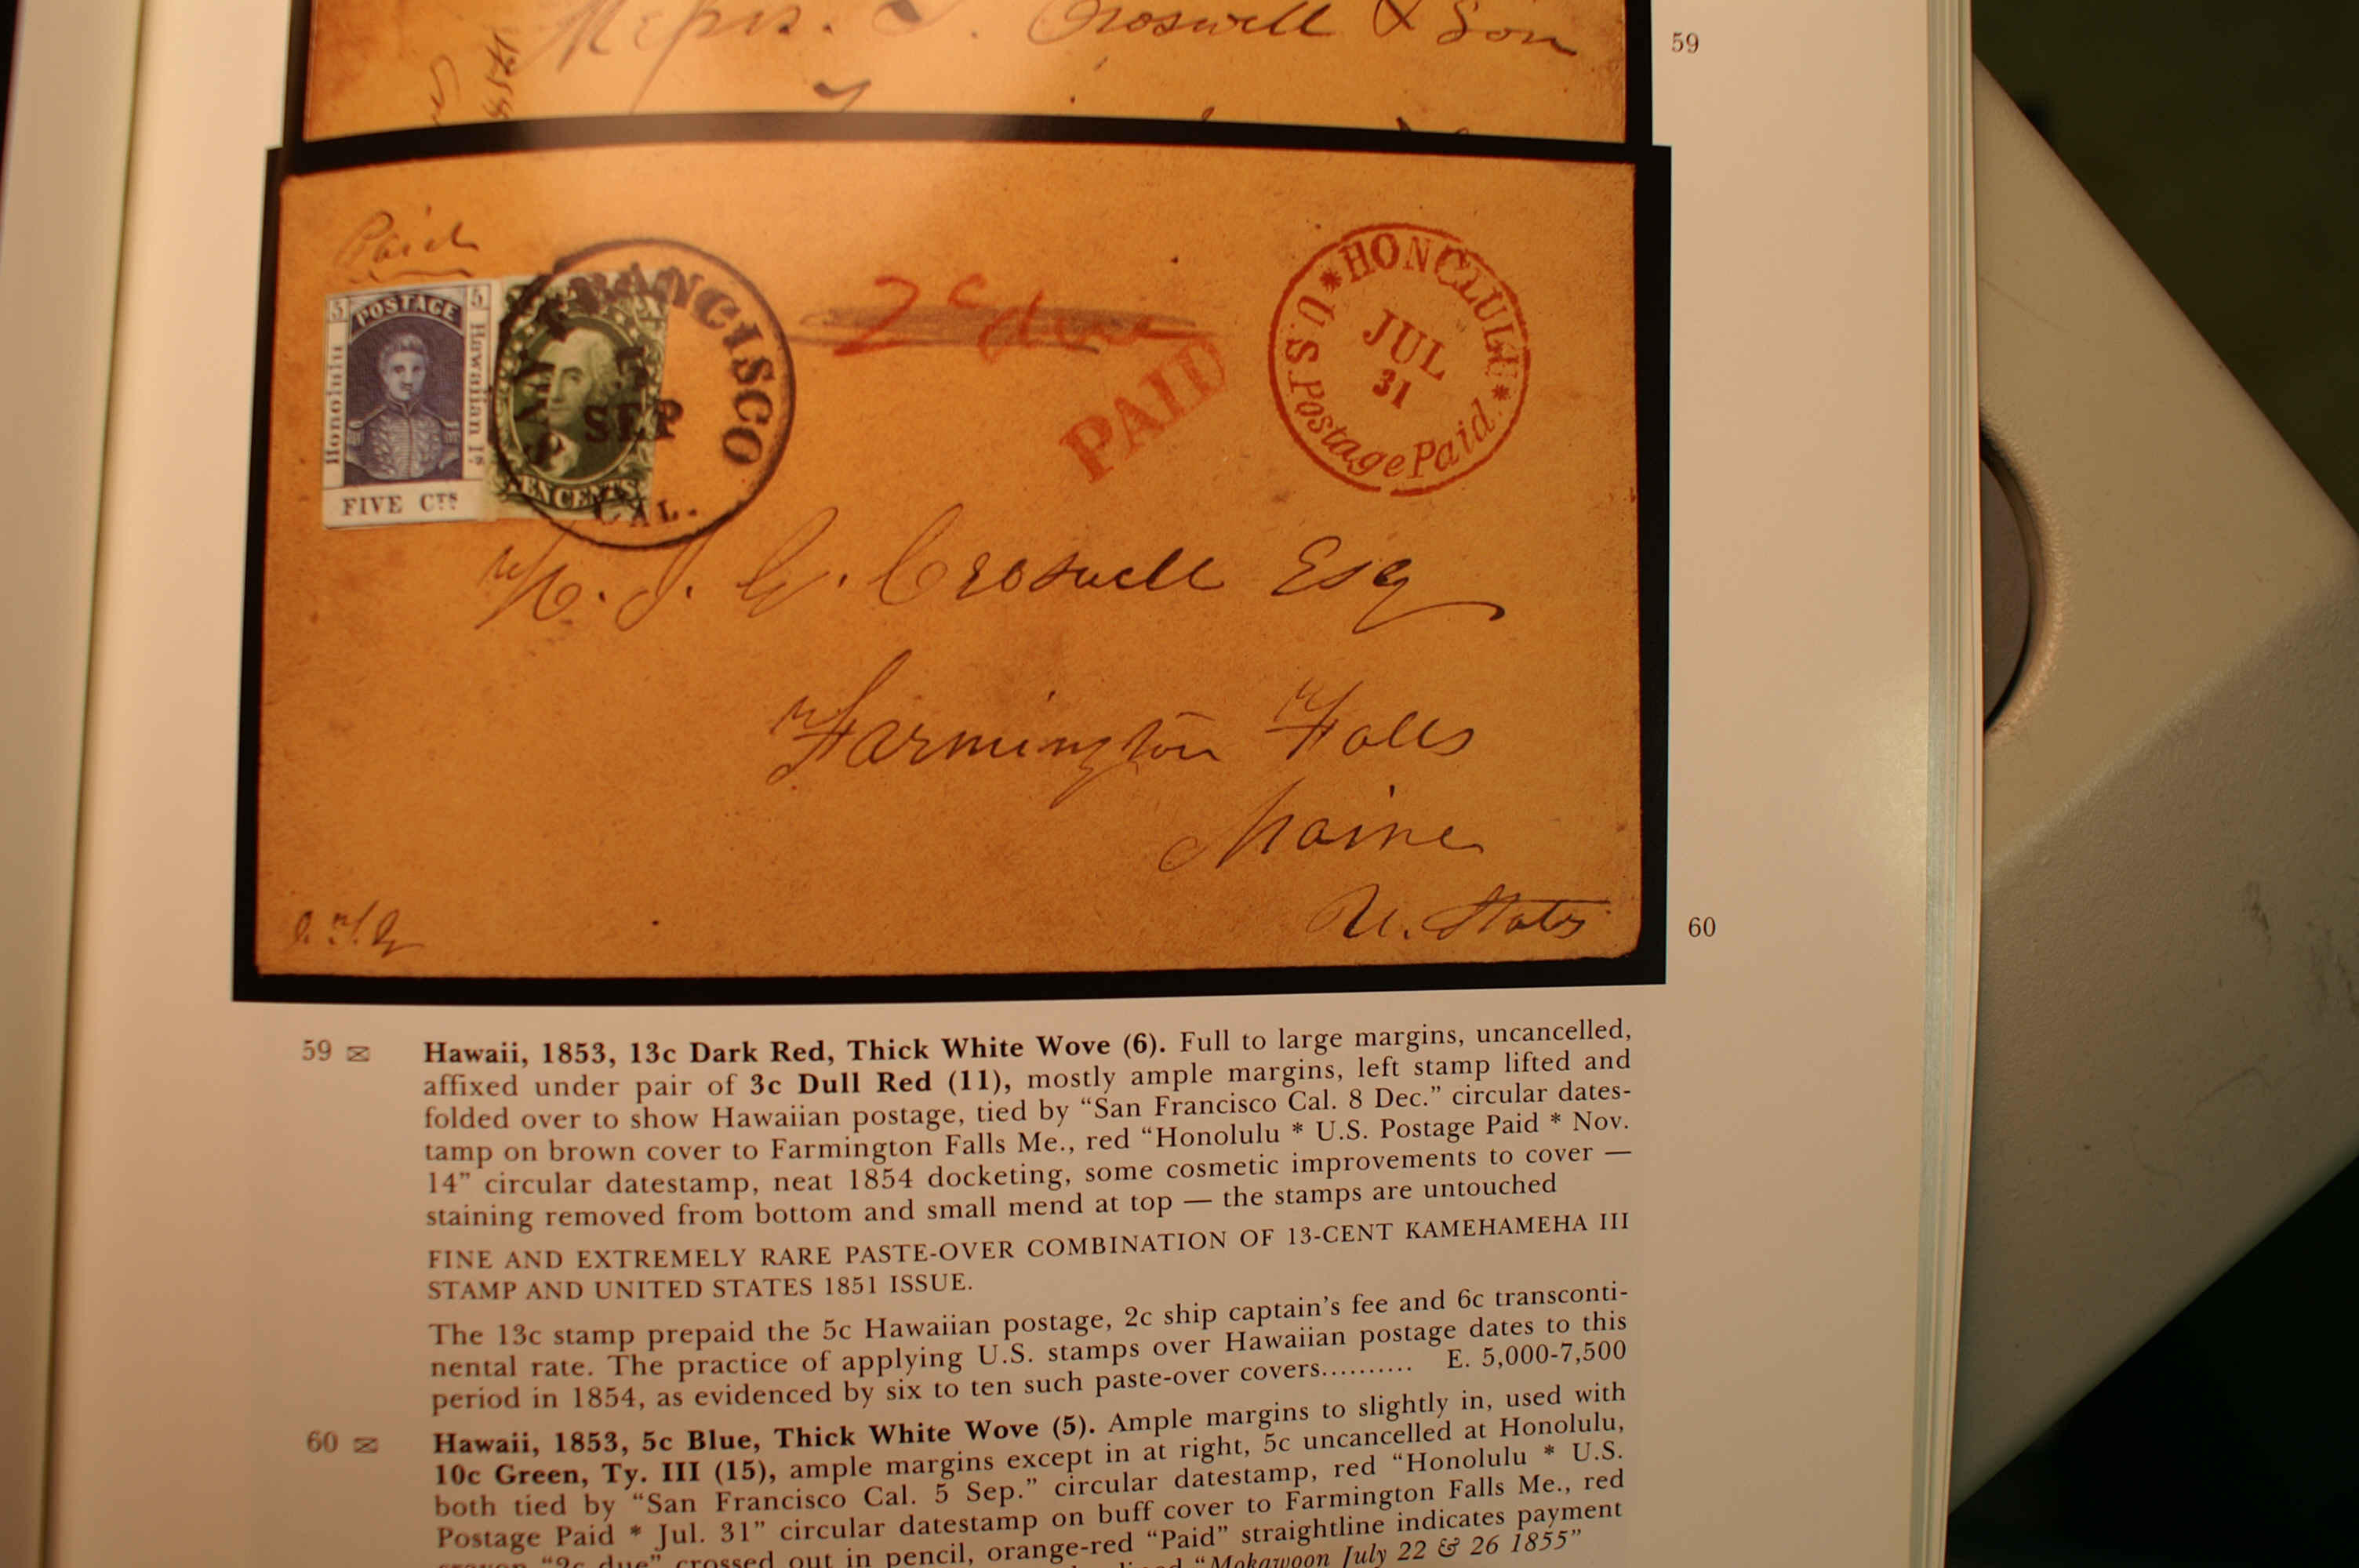 Croswell & Son
59
Paid
5 POSTAGE 5
Honolulu
Hawaiian Is
FIVE CTS
FRANCISCO
5
SEP
CAL.
TEN CENTS
2c due
PAID
HONOLULU
U.S. Postage Paid
JUL
31
Croswell Esq
Farmington Falls
Maine
U. States
60
59 Hawaii, 1853, 13c Dark Red, Thick White Wove (6). Full to large margins, uncancelled,
affixed under pair of 3c Dull Red (11), mostly ample margins, left stamp lifted and
folded over to show Hawaiian postage, tied by “San Francisco Cal. 8 Dec.” circular dates-
tamp on brown cover to Farmington Falls Me., red “Honolulu * U.S. Postage Paid * Nov.
14” circular datestamp, neat 1854 docketing, some cosmetic improvements to cover —
staining removed from bottom and small mend at top — the stamps are untouched
FINE AND EXTREMELY RARE PASTE-OVER COMBINATION OF 13-CENT KAMEHAMEHA III
STAMP AND UNITED STATES 1851 ISSUE.
The 13c stamp prepaid the 5c Hawaiian postage, 2c ship captain’s fee and 6c transconti-
nental rate. The practice of applying U.S. stamps over Hawaiian postage dates to this
period in 1854, as evidenced by six to ten such paste-over covers.......... E. 5,000-7,500
60 Hawaii, 1853, 5c Blue, Thick White Wove (5). Ample margins to slightly in, used with
10c Green, Ty. III (15), ample margins except in at right, 5c uncancelled at Honolulu,
both tied by “San Francisco Cal. 5 Sep.” circular datestamp, red “Honolulu * U.S.
Postage Paid * Jul. 31” circular datestamp on buff cover to Farmington Falls Me., red
crayon “2c due” crossed out in pencil, orange-red “Paid” straightline indicates payment
“Mokawoon July 22 & 26 1855”